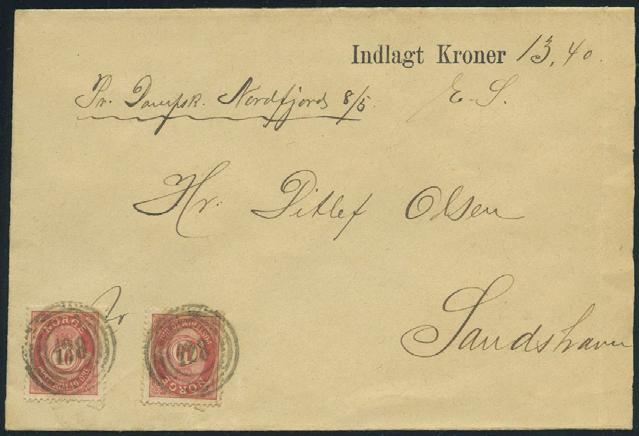 Indlagt Kroner 13,40.
Pr. Dampsk. Nordfjord 8/5
E. S.
Hr. Ditlef Olsen
Sandshavn
NORGE
NORGE